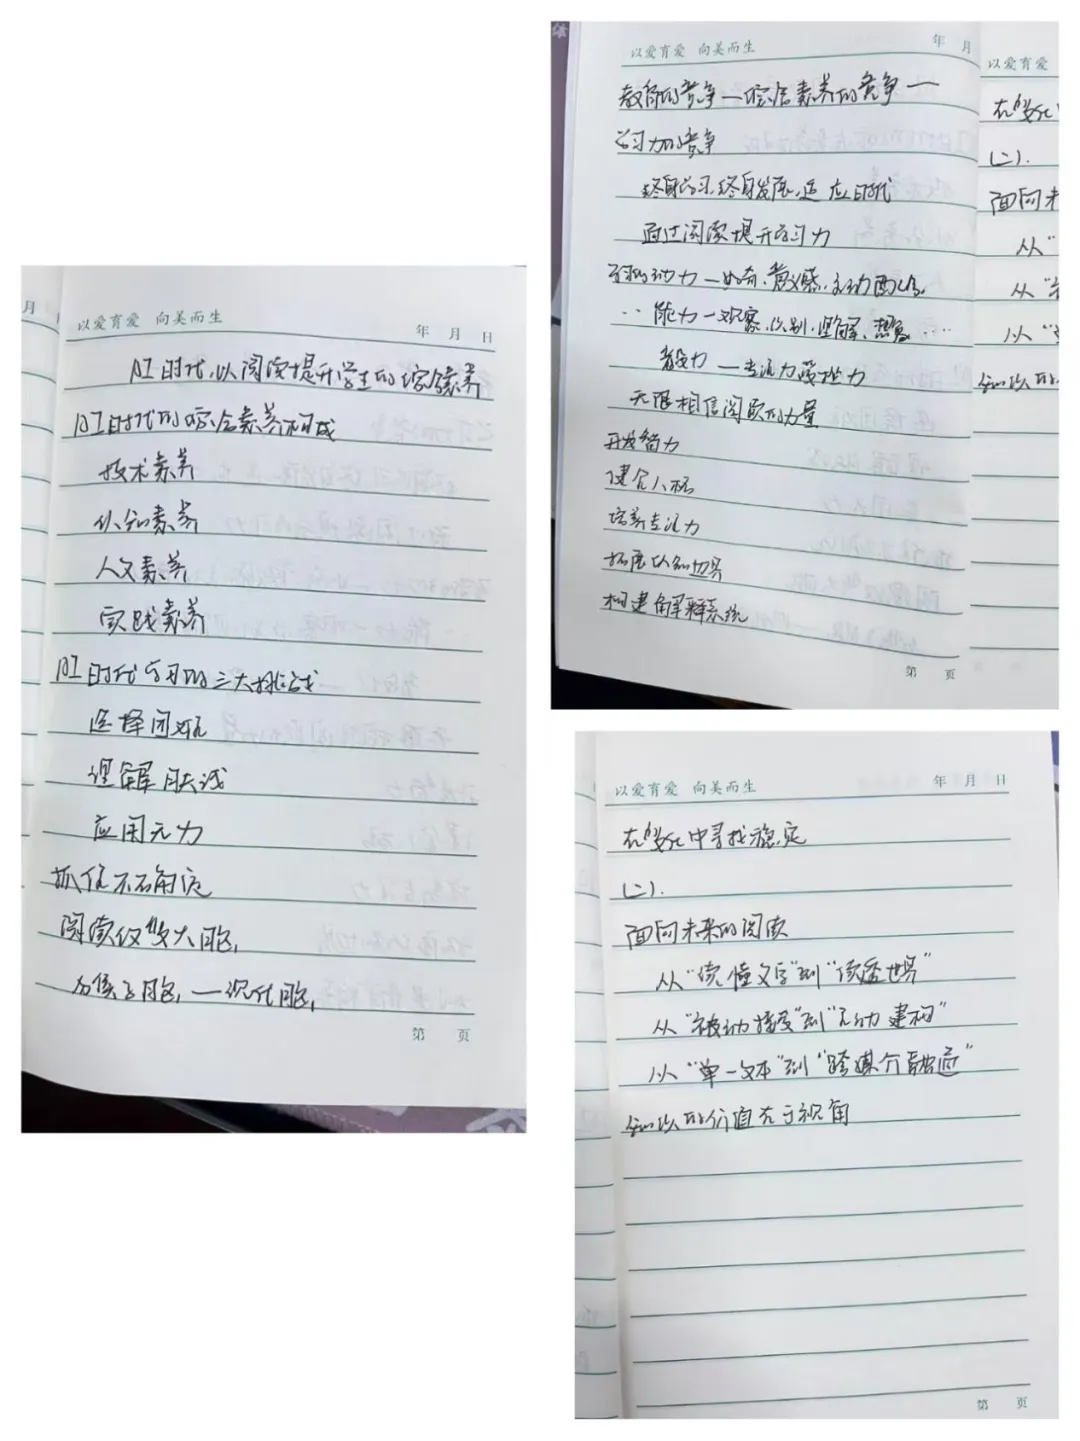 月
以爱育爱 向美而生
年 月 日
AI时代,以阅读提升学生的综合素养
AI时代的综合素养构成
技术素养
认知素养
人文素养
实践素养
AI时代学习的三大挑战
选择困难
理解肤浅
应用无力
抓住不确定
阅读改变大脑,
脑,一现代脑,
第 页
以爱育爱 向美而生
年 月
教育的竞争一综合素养的竞争一
学习力的竞争
终身学习,终身发展,适应时代
通过阅读提升学习力
动力一好奇、意义感、主动
能力一观察、识别、理解、想象……
毅力一专注力 力
无限相信阅读的力量
开发智力
健全人格
培养专注力
拓展认知边界
构建解释系统
第 页
以爱育爱
在变化
(二).
面向未
从“
从“
从“
知识的
以爱育爱 向美而生
年 月 日
在变化中寻找稳定
(二).
面向未来的阅读
从“读懂文字”到“读透世界”
从“被动接受”到“主动建构”
从“单一文本”到“跨媒介融通”
知识的价值在于视角
第 页